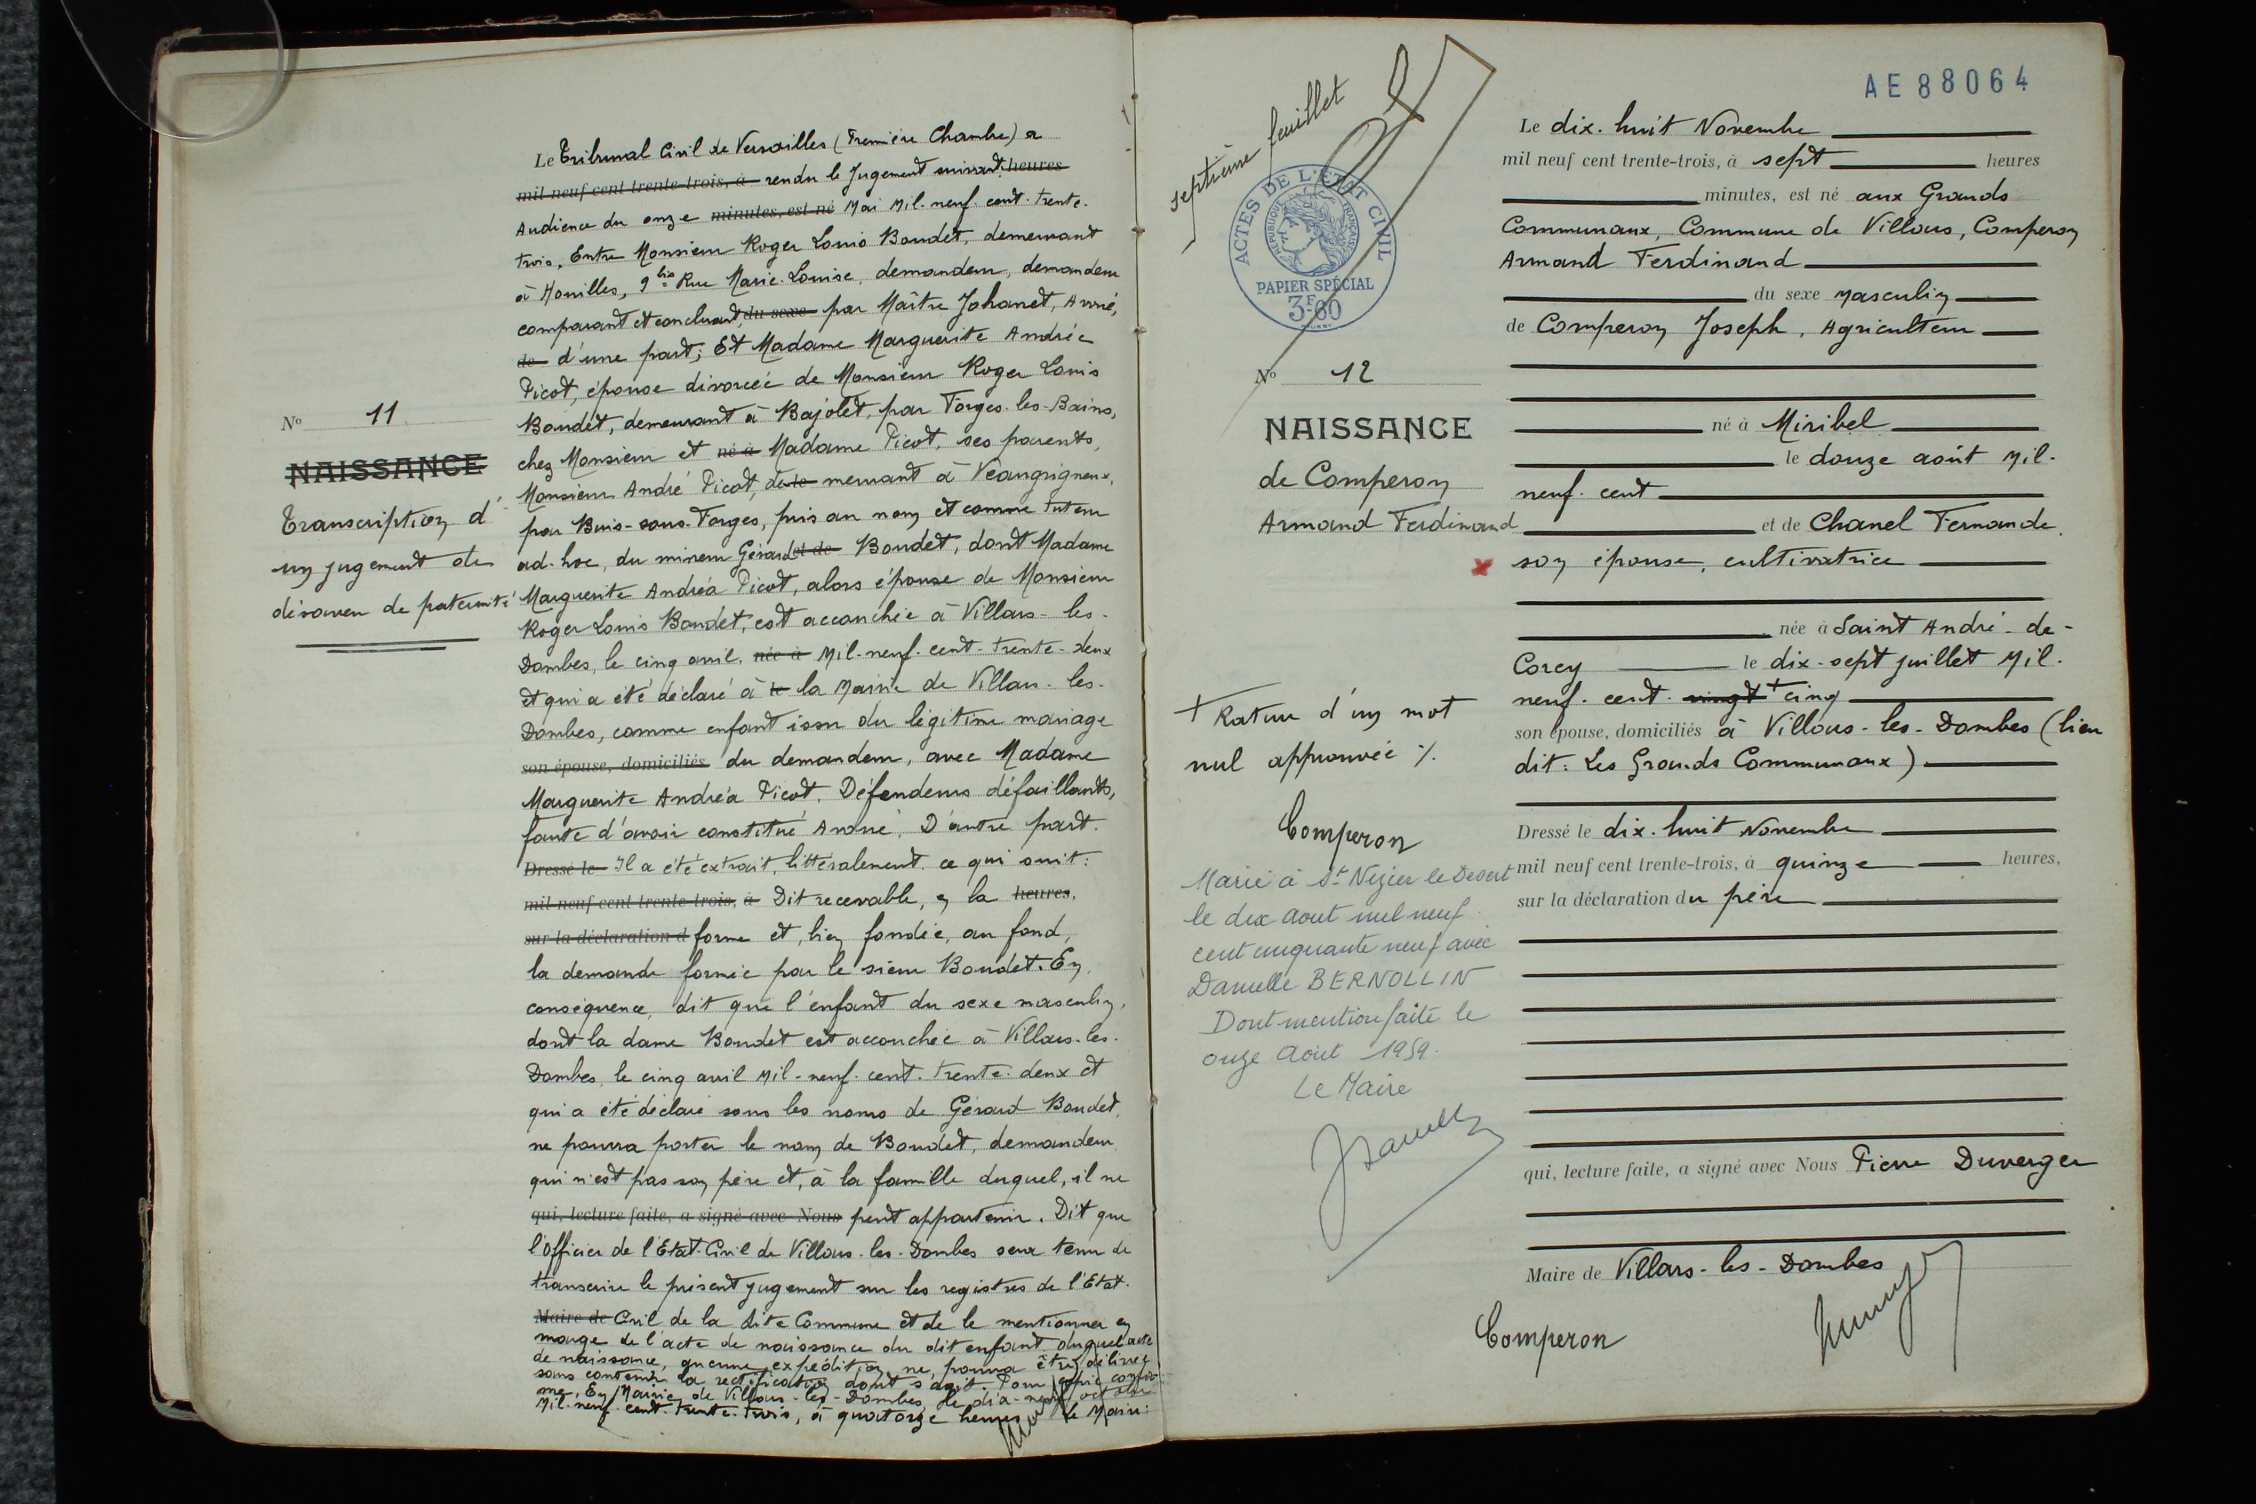 Le Tribunal Civil de Versailles (Première Chambre) a
mil neuf cent trente-trois, à rendu le Jugement suivant: heures
Audience du onze minutes, est né Mai Mil-neuf-cent-trente-
trois. Entre Monsieur Roger Louis Baudet, demeurant
à Houilles, 9 bis Rue Marie-Louise, demandeur, demandeur
comparant et concluant, du sexe par Maître Johanet, Avoué,
de d'une part; Et Madame Marguerite Andréa
Picot, épouse divorcée de Monsieur Roger Louis
Baudet, demeurant à Bajolet, par Forges-les-Bains,
chez Monsieur et né à Madame Picot, ses parents,
Monsieur André Picot, de le meurant à Veaugrigneux,
par Buis-sous-Forges, pris au nom et comme tuteur
ad-hoc, du mineur Gérard et de Baudet, dont Madame
Marguerite Andréa Picot, alors épouse de Monsieur
Roger Louis Baudet, est accouchée à Villars-les-
Dombes, le cinq avril, née à Mil-neuf-cent-trente-deux
et qui a été déclaré à le la Mairie de Villars-les-
Dombes, comme enfant issu du légitime mariage
son épouse, domiciliés du demandeur, avec Madame
Marguerite Andréa Picot. Défendeurs défaillants,
faute d'avoir constitué Avoué, D'autre part.
Dressé le Il a été extrait, littéralement ce qui suit:
mil neuf cent trente-trois, à Dit recevable, en la heures,
sur la déclaration d forme et, bien fondée, au fond,
la demande formée par le sieur Baudet. En
conséquence, dit que l'enfant du sexe masculin,
dont la dame Baudet est accouchée à Villars-les-
Dombes, le cinq avril Mil-neuf-cent-trente-deux et
qui a été déclaré sous les noms de Gérard Baudet,
ne pourra porter le nom de Baudet, demandeur
qui n'est pas son père et, à la famille duquel, il ne
qui, lecture faite, a signé avec Nous peut appartenir. Dit que
l'Officier de l'Etat-Civil de Villars-les-Dombes sera tenu de
transcrire le présent jugement sur les registres de l'Etat-
Maire de Civil de la dite Commune et de le mentionner en
marge de l'acte de naissance du dit enfant duquel acte
de naissance, aucune expédition ne pourra être délivrée
sans contenir la rectification dont s'agit. Pour copie confor-
me, En Mairie de Villars-les-Dombes, le dix-neuf octobre
Mil-neuf-cent-trente-trois, à quatorze heures Le Maire:
No 11
NAISSANCE
Transcription d'
un jugement de
désaveu de paternité
septième feuillet
ACTES DE L'ÉTAT CIVIL
RÉPUBLIQUE FRANÇAISE
PAPIER SPÉCIAL
3F60
No 12
NAISSANCE
de Comperon
Armand Ferdinand
+ Rature d'un mot
nul approuvée ./.
Comperon
Marié à St Nizier le Desert
le dix Aout mil neuf
cent cinquante neuf avec
Danielle BERNOLLIN
Dont mention faite le
onze Août 1959.
Le Maire
AE 88064
Le dix-huit Novembre
mil neuf cent trente-trois, à sept heures
minutes, est né aux Grands
Communaux, Commune de Villars, Comperon
Armand Ferdinand
du sexe masculin
de Comperon Joseph, Agriculteur
né à Miribel
le douze août Mil-
neuf-cent
et de Chanel Fernande
son épouse, cultivatrice
née à Saint André-de-
Corcy le dix-sept juillet Mil-
neuf-cent-vingt + cinq
son épouse, domiciliés à Villars-les-Dombes (lieu
dit: Les Grands Communaux)
Dressé le dix-huit Novembre
mil neuf cent trente-trois, à quinze heures,
sur la déclaration du père
qui, lecture faite, a signé avec Nous Pierre Duverger
Maire de Villars-les-Dombes
Comperon